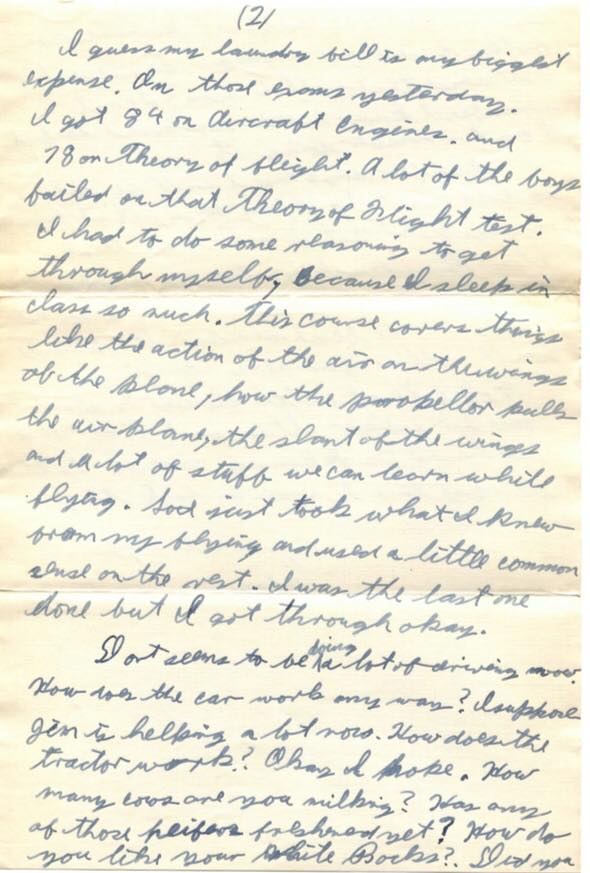 (2)
I guess my laundry bill is my biggest
expense. On those exams yesterday.
I got 84 on Aircraft Engines. and
78 on Theory of flight. A lot of the boys
failed on that Theory of Flight test.
I had to do some reasoning to get
through myself, because I sleep in
class so much. This course covers things
like the action of the air on the wings
of the plane, how the propellor pulls
the air plane, the slant of the wings
and a lot of stuff we can learn while
flying. So I just took what I knew
from my flying and used a little common
sense on the rest. I was the last one
done but I got through okay.
seems to be doing a lot of driving now.
How does the car work any way? I suppose
Jim is helping a lot now. How does the
tractor work? Okay I hope. How
many cows are you milking? Has any
of those heifers freshened yet? How do
you like your White Rocks? Did you